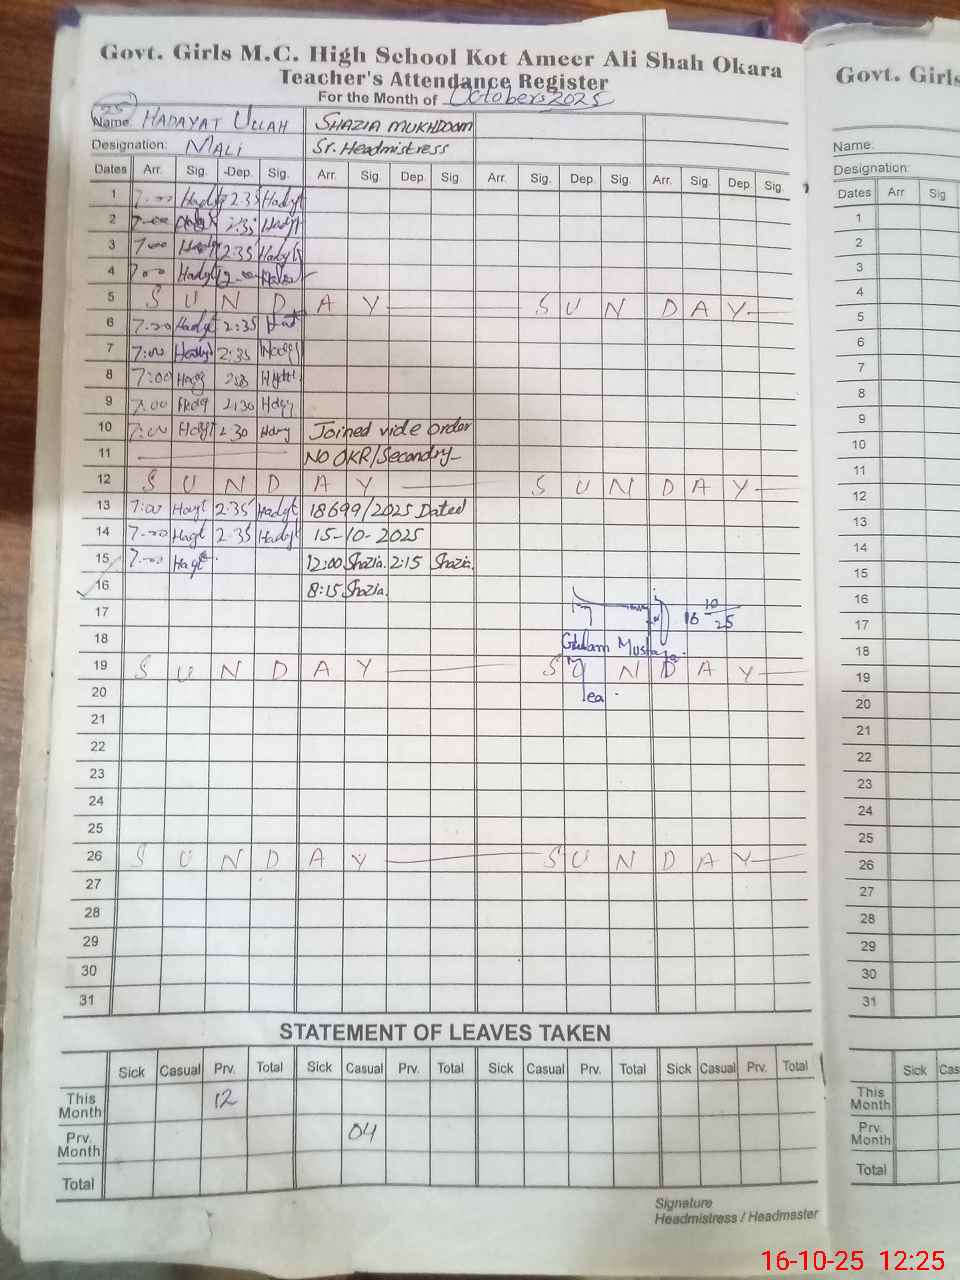 Govt. Girls M.C. High School Kot Ameer Ali Shah Okara
Teacher's Attendance Register
For the Month of Octobers 2025
25
Name: HADAYAT ULLAH SHAZIA MUKHDOOM
Designation: MALI Sr. Headmistress
Dates Arr. Sig. Dep. Sig. Arr. Sig. Dep. Sig. Arr. Sig. Dep. Sig. Arr. Sig. Dep. Sig.
1 7:00 Hadyt 2:35 Hadyt
2 7:00 2:35 Hadyt
3 7:00 Hadyt 2:35 Hadyt
4 7:00 Hadyt
5 S U N D A Y S U N D A Y
6 7:00 Hadyt 2:35
7 7:00 Hadyt 2:35
8 7:00
9 7:00 2:30
10 7:00 2:30 Joined vide order
11 NO OKR/Secondry
12 S U N D A Y S U N D A Y
13 7:00 Hayt 2:35 Hadyt 18699/2025 Dated
14 7:00 Hagt 2:35 Hadyt 15-10-2025
15 7:00 Hagt 12:00 Shazia. 2:15 Shazia.
16 8:15 Shazia.
17 16 10/25
18 Ghulam Mustafa
19 S U N D A Y S U N D A Y
20
21
22
23
24
25
26 S U N D A Y S U N D A Y
27
28
29
30
31
STATEMENT OF LEAVES TAKEN
Sick Casual Prv. Total Sick Casual Prv. Total Sick Casual Prv. Total Sick Casual Prv. Total
This Month 12
Prv. Month 04
Total
Signature
Headmistress / Headmaster
Govt. Girls
Name:
Designation:
Dates Arr Sig
1
2
3
4
5
6
7
8
9
10
11
12
13
14
15
16
17
18
19
20
21
22
23
24
25
26
27
28
29
30
31
Sick Cas
This Month
Prv. Month
Total
16-10-25 12:25